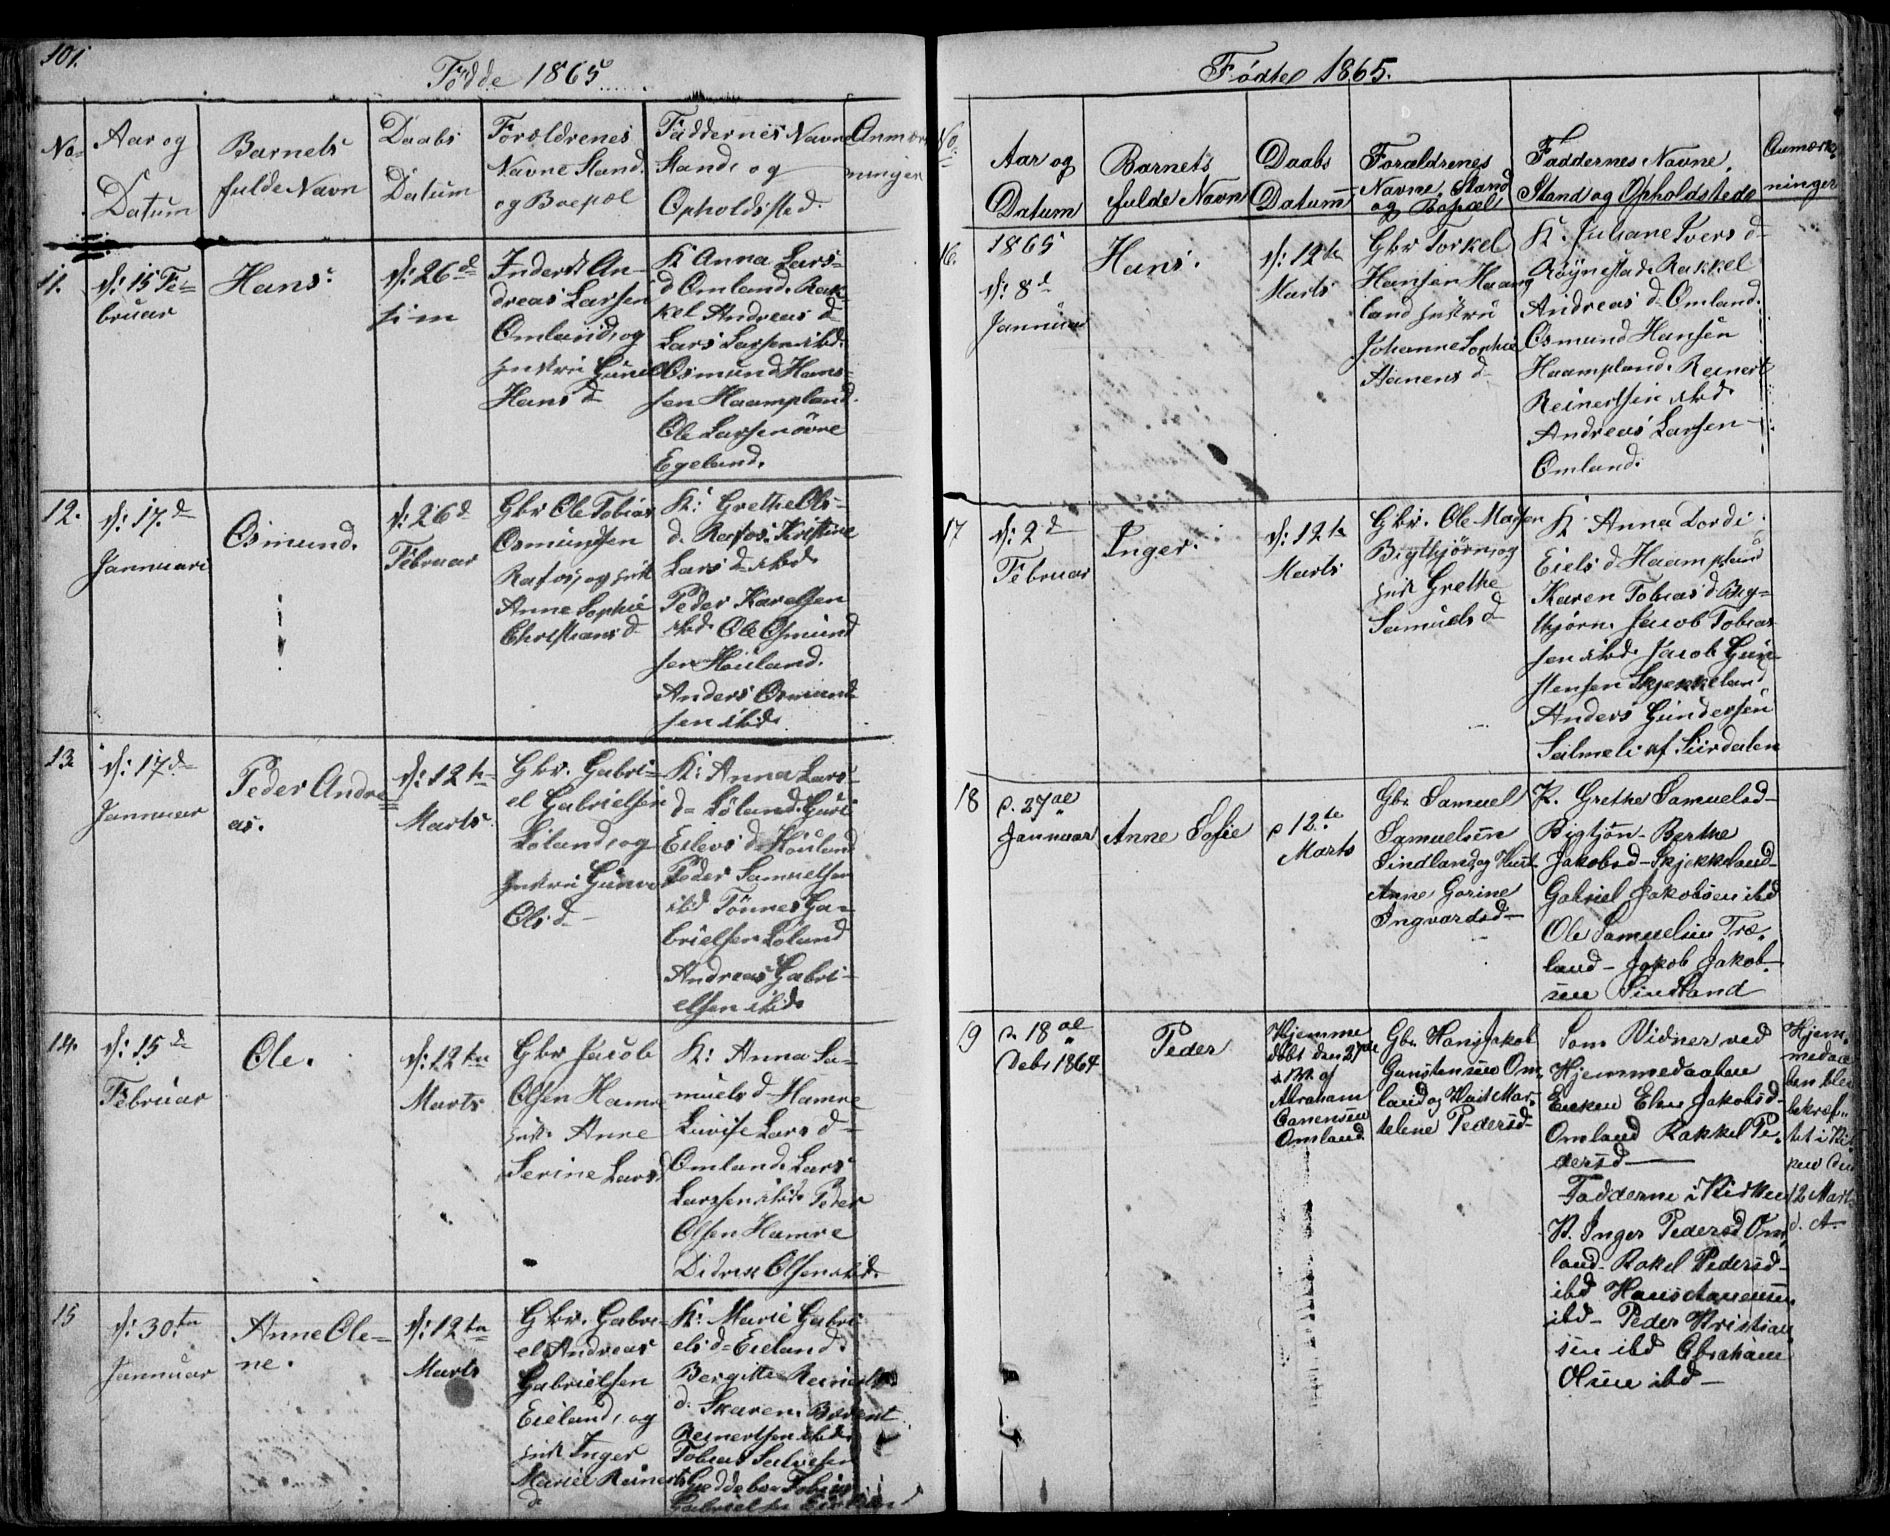 101.
Fødde 1865
No
Aar og
Datum
Barnets
fulde Navn
Daabs
Datum
Forældrenes
Navne Stand.
og Boepæl
Faddernes Navne
Stand, og
Opholdsted.
Anmær
ninger
11.
d: 15 Fe-
bruar
Hans.
d: 26 d
Inderst An-
dreas Larsen
Omland, og
Hustru Gunil
Hans d
K Anna Lars-
d Omland. Rak-
kel Andreas d
Lars Larsen ibd.
Osmund Hans-
sen Haampland.
Ole Larsen övre
Egeland.
12.
d: 17. d
Januari
Osmund.
d: 26 d
Februar
Gbr Ole Tobias
Osmundsen
Rafos, og Hust
Anne Sophie
Christians d
K: Grethe Ols-
d. Rafos. Kristine
Lars d ibd.
Peder Karelsen
ibd. Ole Osmund
sen Houland.
Anders Osmund
sen ibd.
13.
d: 17 d
Januar
Peder Andre
as.
d: 12 te
Marts
Gbr. Gabri-
el Gabrielsen
Loland, og
Hustru Gunvor
Ols d
K: Anna Lars-
d Loland. Guri
Eilevs d Houland
Peder Samuelsen
ibd Tönnes Ga-
brielsen Loland
Andreas Gabri-
elsen ibd.
14.
d: 15 de
Februar
Ole.
d: 12 te
Marts
Gbr Jacob
Olsen Hamre
Hust. Anne
Serine Larsd
K: Anna Sa-
muels d Hamre
Luvise Lars d-
Omland. Lars
Larssen ibd. Peder
Olsen Hamre
Didrik Olsen ibd.
15
d: 30. te
Januar
Anne Ole-
ne.
d: 12 te
Marts
Gbr. Gabri-
el Andreas
Gabrielsen
Eieland, og
Hust Inger
Marie Reinerts
d
K: Marie Gabri
els d Eieland.
Bergitte Reinerts
d. Skaren. Berent
Reinertsen ibd.
Tobias Salvesen
Geddebo Tobias
Gabrielsen
Födte 1865.
No.
Aar og
Datum
Barnets
fulde Navn
Daabs
Datum
Forældrenes
Navne, Stand
og Bopæl
Faddernes Navne,
Stand og Opholdstede
Anmærk
ninger
16.
1865
d: 8 d
Januar
Hans.
d: 12 te
Marts
Gbr Torkel
Hansen Haamp
land Hustru
Johanne Sophie
Hanens d
K. Juliane Ivers d
Röynestad. Rakkel
Andreas d Omland.
Osmund Hansen
Haampland. Reinert
Reinertsen ibd.
Andreas Larsen
Omland.
17
d: 2 d
Februar
Inger.
d: 12 te
Marts
Gbr. Ole
Bigthjørn, og
Hust Grethe
Samuels d
K Anna Tordi
Eiels d Haampland
Karen Tobias d Big-
thjörn. Jacob Tobias
sen ibd. Jacob Gun
stensen Skjekkeland
Anders Gundersen
Salmeli af Sirdalen
18
d. 27 de
Januar
Anne Sofie
d 12. te
Marts
Gbr. Samuel
Samuelsen
Sindland og Hust.
Anne Gorine
Ingvardsd-
K. Grethe Samuelsd-
Bigtjön- Berthe
Jakobsd- Skjekkeland-
Gabriel Jakobsen ibd
Ole Samuelsen Træ-
land- Jakob Jakob-
sen Sindland
19
d. 18 de
Debr 1864
Peder
Hjemme
döbt den 27de
s. M. af
Abraham
Omland
Gbr. Hans Jakob
Gunstensen Om
land og Hust Mar-
telene Pedersd-
Som Vidner ved
Hjemmedaaben
Enken Elen Jakobsd-
Omland Rakkel Pe-
dersd-
Fadderne i Kirken
K. Inger Pedersd Om
land- Rakel Pedersd-
ibd Hans
ibd- Peder Kristian
sen ibd Abraham
Olsen ibd-
Hjem-
medaa
ben blev
bekræf-
tet i Kir
ken den
12 Marts
d. A.